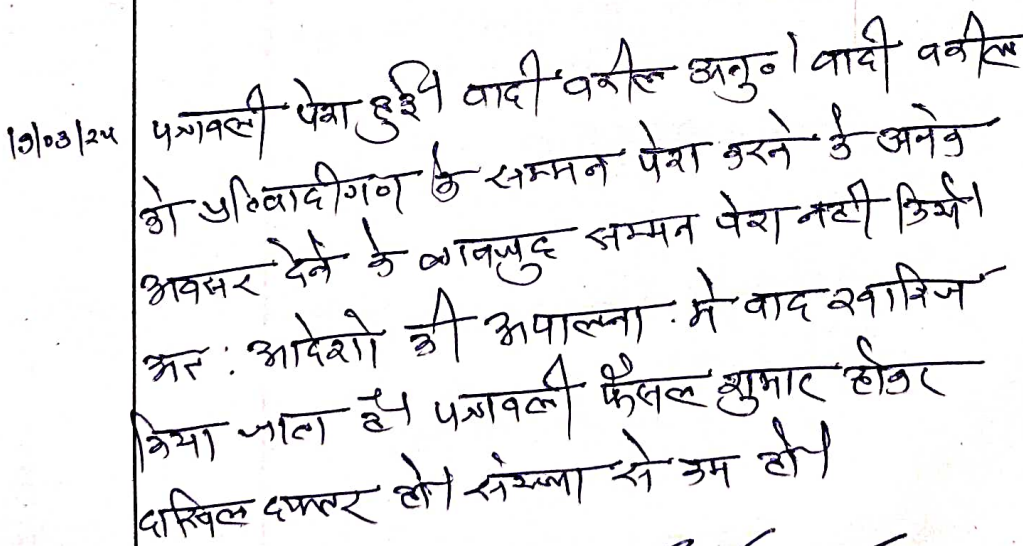 19/03/24 पत्रावली पेश हुई। वादी वकील अनु०। वादी वकील
को प्रतिवादीगण के सम्मन पेश करने के अनेक
अवसर देने के बावजुद सम्मन पेश नही किये।
अत: आदेशो की अपालना मे वाद खारिज
किया जाता है। पत्रावली फैसल शुमार होकर
दाखिल दफ्तर हो। संख्या से कम हो।